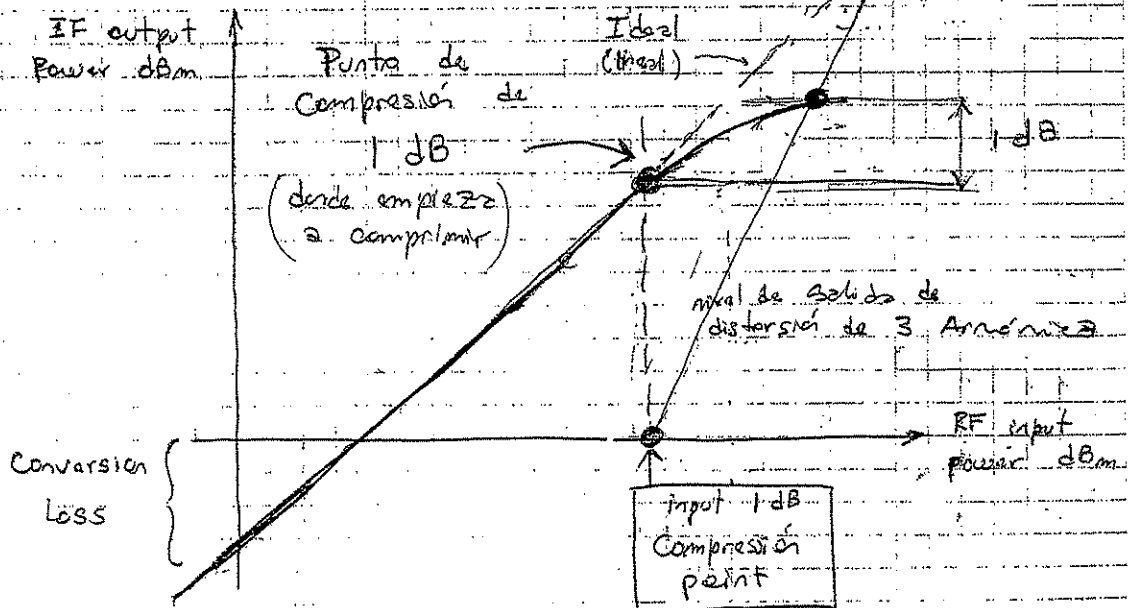 IF output
Power dBm
Punto de
Compresión de
1 dB
(donde empieza
a comprimir)
Ideal
(lineal)
1 dB
nivel de salida de
distorsión de 3 Armónica
Conversion
Loss
RF input
power dBm
input 1 dB
Compressión
point